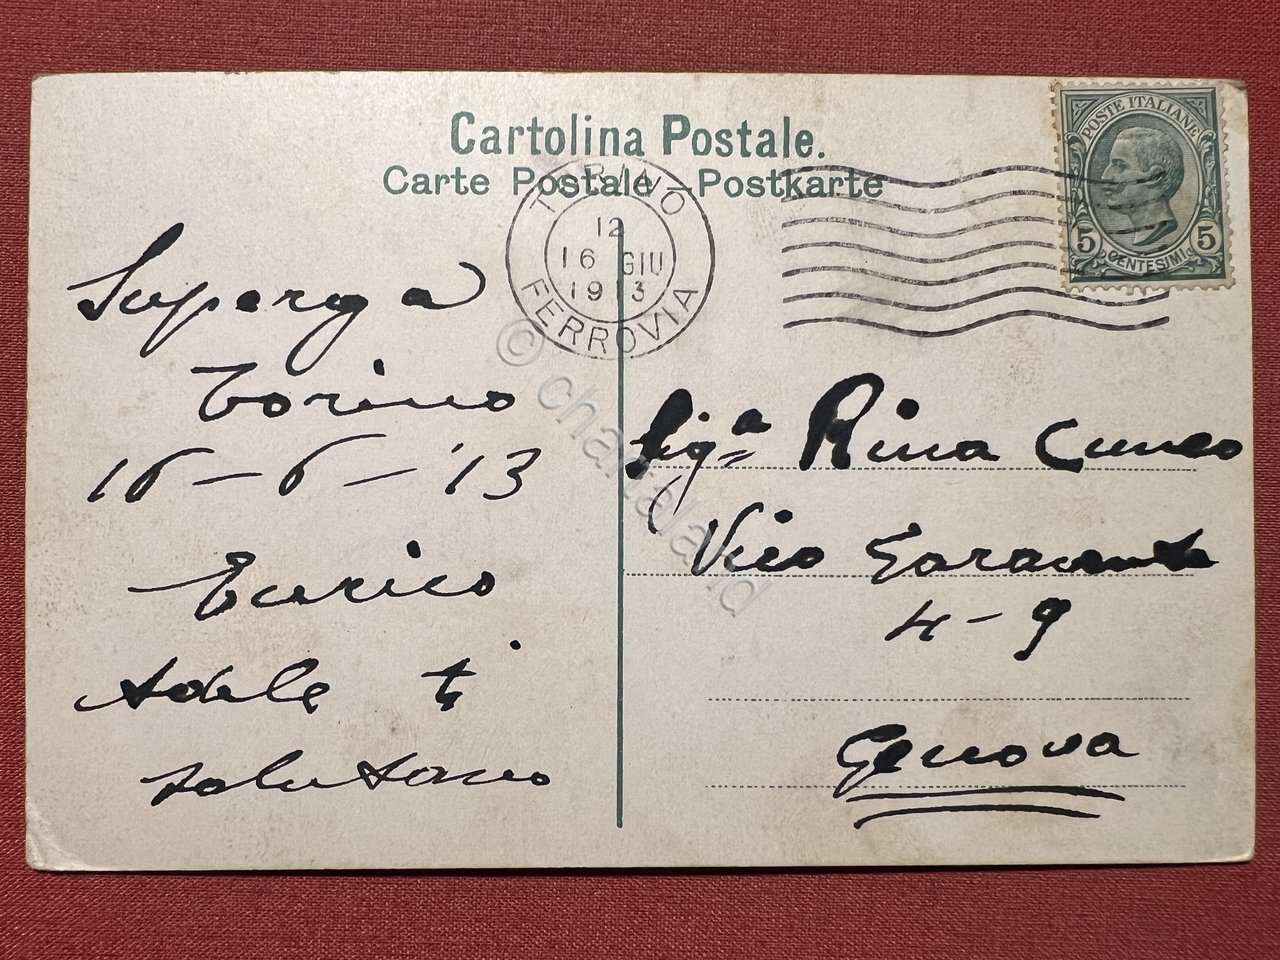 Cartolina Postale.
Carte Postale – Postkarte
POSTE ITALIANE
5 CENTESIMI 5
TORINO
12
16 GIU
1913
FERROVIA
Superga
Torino
16-6-'13
Enrico
Adele ti
salutano
Sig.a Rina Cuneo
Vico
4-9
Genova
© chartaland